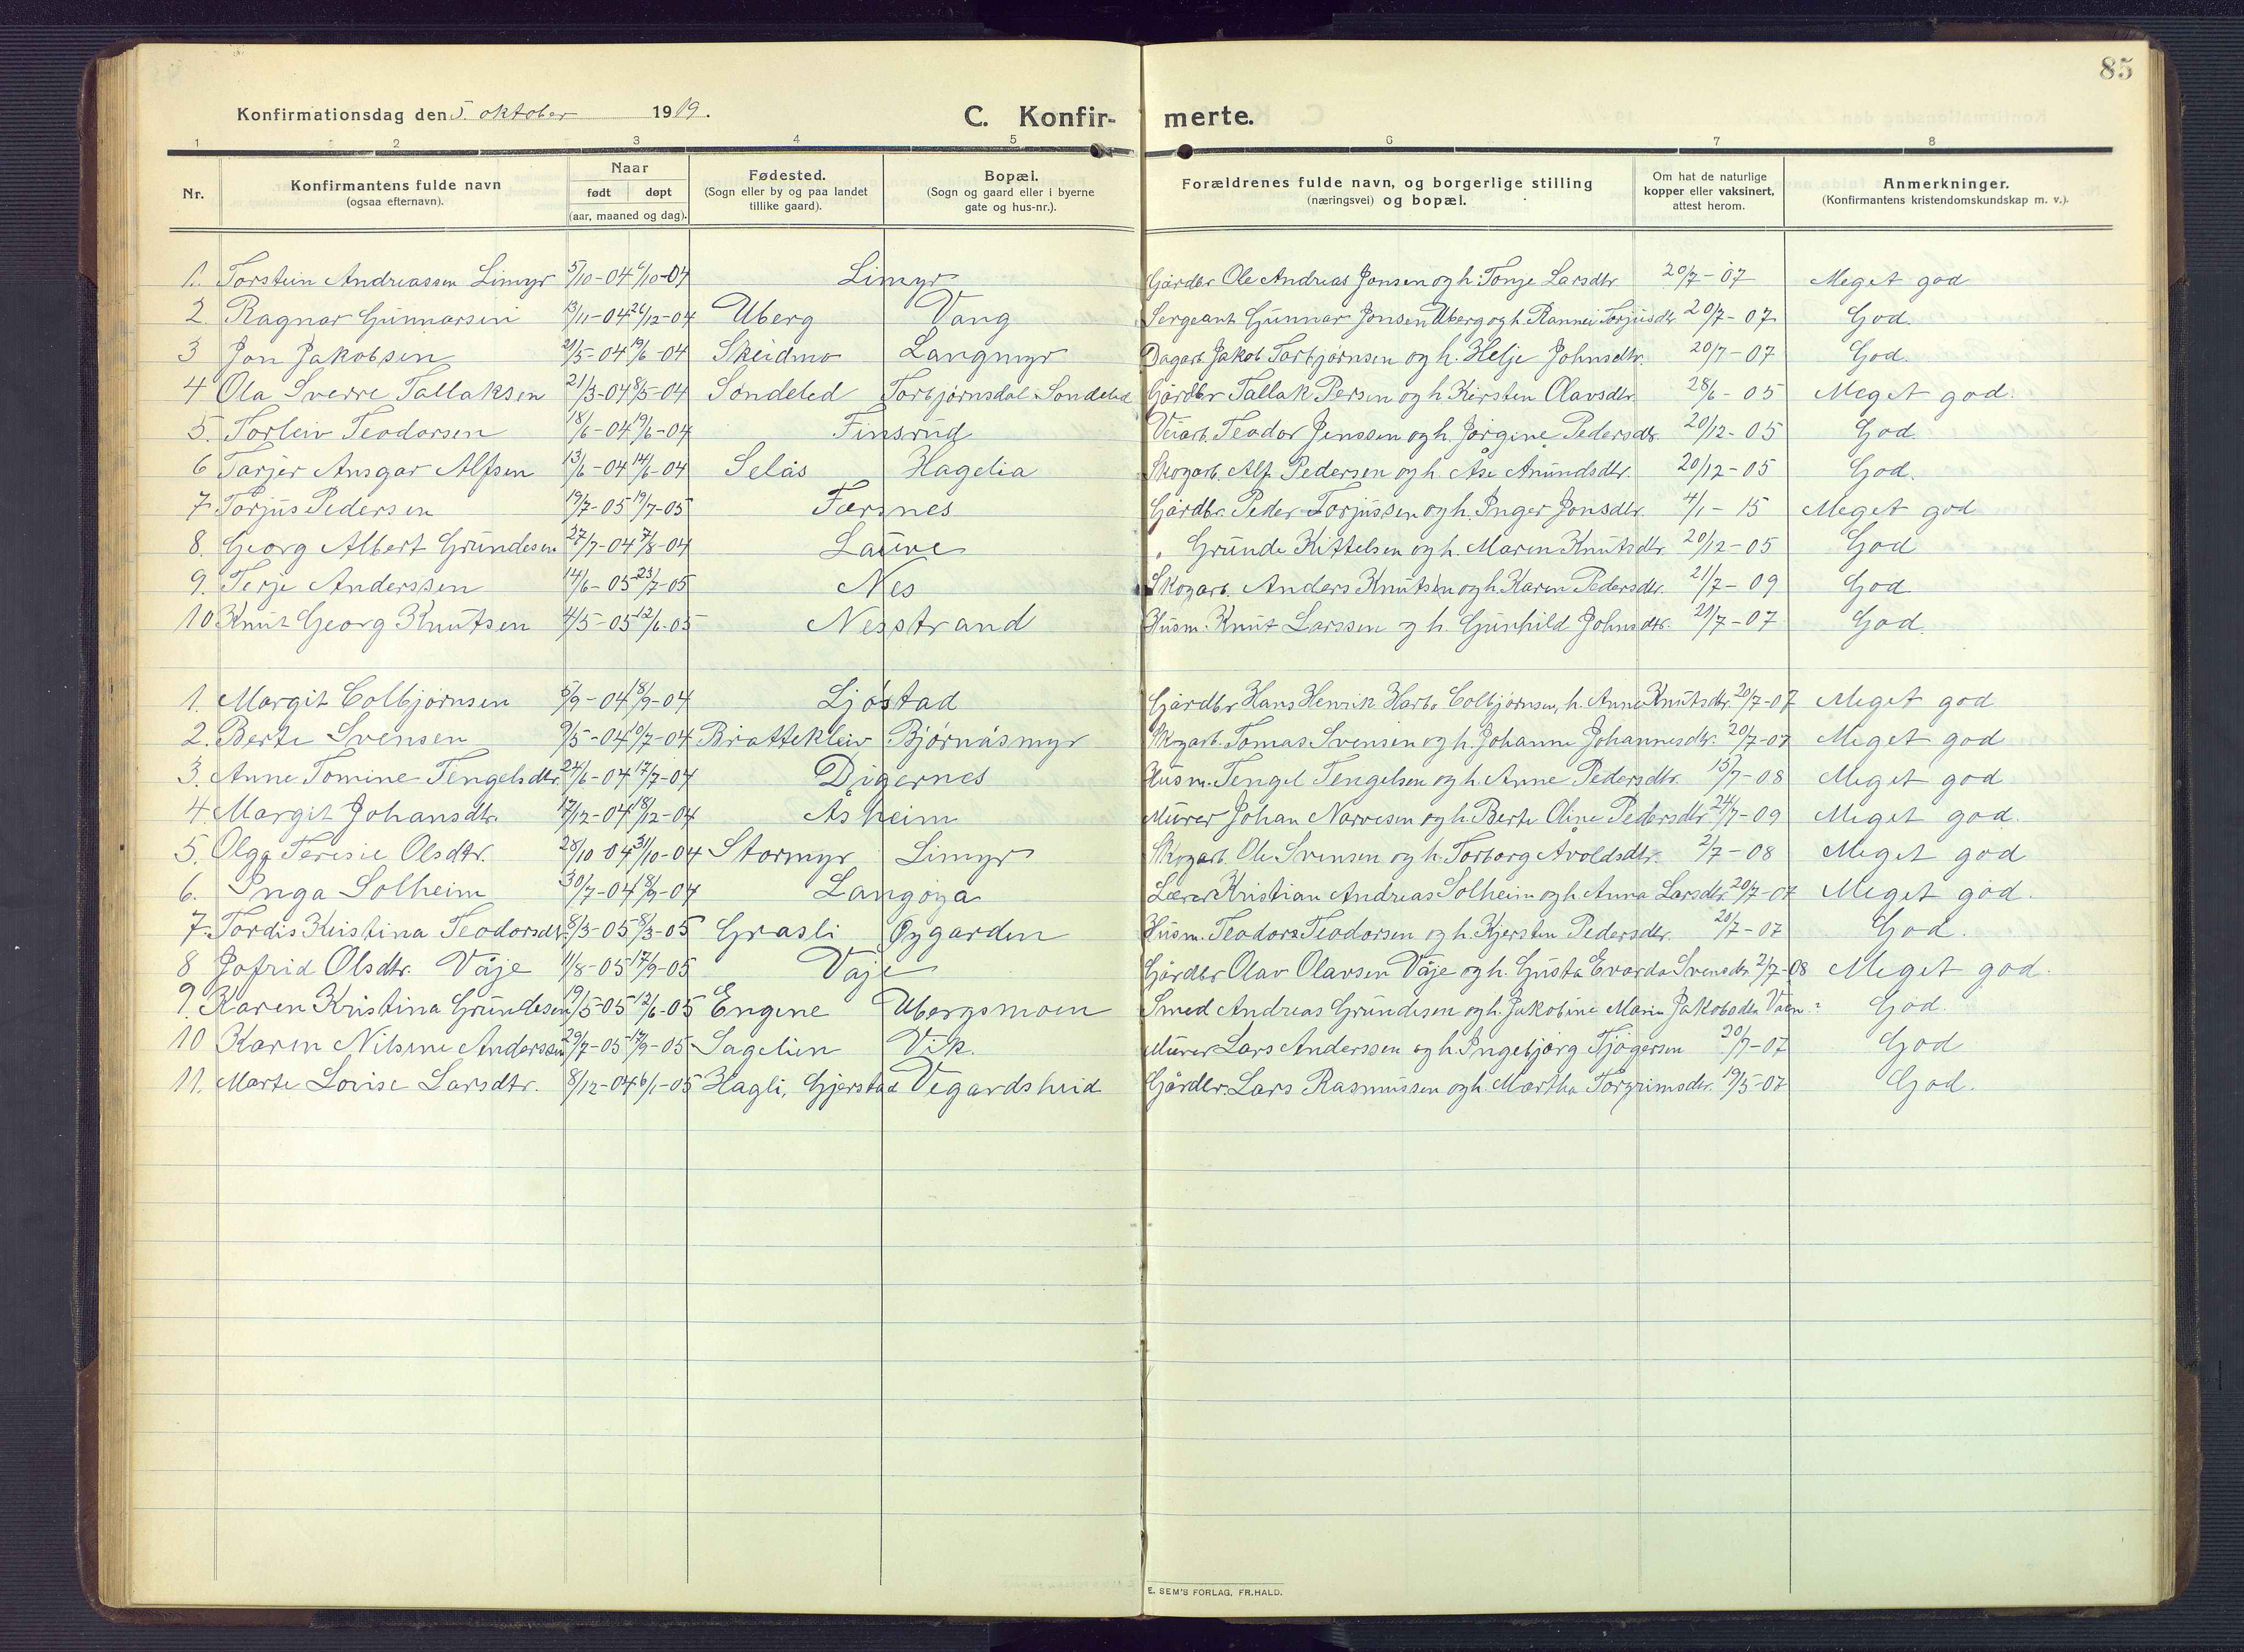 85
Konfirmationsdag den 5. oktober 1919.
C. Konfir- merte.
1 2 3 4 5 6 7 8
Nr.
Konfirmantens fulde navn
(ogsaa efternavn).
Naar
født døpt
(aar, maaned og dag).
Fødested.
(Sogn eller by og paa landet
tillike gaard).
Bopæl.
(Sogn og gaard eller i byerne
gate og hus-nr.).
Forældrenes fulde navn, og borgerlige stilling
(næringsvei) og bopæl.
Om hat de naturlige
kopper eller vaksinert,
attest herom.
Anmerkninger.
(Konfirmantens kristendomskundskap m. v.).
1. Torstein Andreassen Limyr 5/10-04 6/10-04 Limyr Gårdbr Ole Andreas Jonsen og h. Tonje Larsdtr 20/7-07 Meget god
2. Ragnar Gunnarsen 13/11-04 26/12-04 Uberg Vang Sergeant Gunnar Jonsen Uberg og h. Rannei Torjusdtr 20/7-07 God.
3 Jon Jakobsen 21/5-04 19/6-04 Skeidmo Langmyr Dagarb. Jakob Torbjørnsen og h. Helje Johnsdtr. 20/7-07 God.
4 Ola Sverre Tallaksen 21/3-04 8/5-04 Søndeled Torbjørnsdal i Søndeled Gårdbr Tallak Persen og h. Kirsten Olavsdtr 28/6-05 Meget god.
5. Torleiv Teodorsen 18/6-04 19/6-04 Finsrud Veiarb. Teodor Jenssen og h. Jørgine Pedersdtr. 20/12-05 God.
6 Tarjer Ansgar Alfsen 13/6-04 14/6-04 Selås Hagelia Skogarb. Alf Pedersen og h. Åse Anundsdtr. 20/12-05 God.
7 Torjus Pedersen 19/7-05 19/7-05 Færsnes Gårdbr. Peder Torjussen og h. Inger Jonsdtr. 4/1-15 Meget god
8. Georg Albert Grundesen 27/7-04 7/8-04 Lauve " Grunde Kittelsen og h. Maren Knutsdtr. 20/12-05 God
9. Terje Anderssen 14/6-05 23/7-05 Nes Skogarb. Anders Knutsen og h. Karen Pedersdtr. 21/7-09 God
10 Knut Georg Knutsen 4/5-05 12/6-05 Nesstrand Husm. Knut Larssen og h. Gunhild Johnsdtr. 21/7-07 God.
1. Margit Colbjørnsen 5/9-04 18/9-04 Ljøstad Gårdbr Hans Henrik Harbo Colbjørnsen, h. Anne Knutsdtr. 20/7-07 Meget god
2. Berte Svensen 9/5-04 10/7-04 Brattekleiv Bjørnåsmyr Skogarb. Tomas Svensen og h. Johanne Johannesdtr. 20/7-07 Meget god
3. Anne Tomine Tengelsdtr. 24/6-04 17/7-04 Digernes Husm. Tengel Tengelsen og h. Anne Pedersdtr. 15/7-08 Meget god
4 Margit Johansdtr. 17/12-04 18/12-04 Åsheim Murer Johan Narvesen og h. Berte Oline Pedersdtr 24/7-09 Meget god.
5. Olga Teresie Olsdtr. 28/10-04 31/10-04 Stormyr Limyr Skogarb. Ole Svensen og h. Torborg Avoldsdtr. 2/7-08 Meget god
6. Inga Solheim 30/7-04 18/9-04 Langøya Lærer Kristian Andreas Solheim og h. Anna Larsdtr. 20/7-07 Meget god.
7. Tordis Kristina Teodorsdtr. 8/3-05 8/3-05 Grasli Øygarden Husm. Teodor Teodorsen og h. Kjersten Pedersdtr. 20/7-07 God.
8 Jofrid Olsdtr. Våje 11/8-05 17/9-05 Våje Gårdbr Olav Olavsen Våje og h. Gusta Evarda Svensdtr. 2/7-08 Meget god.
9. Karen Kristina Grundesen 19/5-05 12/6-05 Engene Ubergsmoen Smed Andreas Grundesen og h. Jakobine Marie Jakobsdtr. Våen. ? God.
10 Karen Nilsine Anderssen 29/7-05 17/9-05 Sagelien Vik. Murer Lars Anderssen og h. Ingebjørg Tjøgersen 20/7-07 God
11. Marte Lovise Larsdtr. 8/12-04 6/1-05 Hagli, Gjerstad Vegardsheid Gårdbr. Lars Rasmussen og h. Martha Torgrimsdtr. 19/5-07 God.
E. SEM'S FORLAG, FR.HALD.